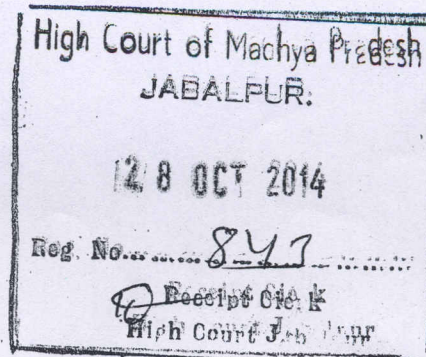 High Court of Madhya Pradesh
JABALPUR:
28 OCT 2014
Reg. No. 847
Receipt Clerk
High Court